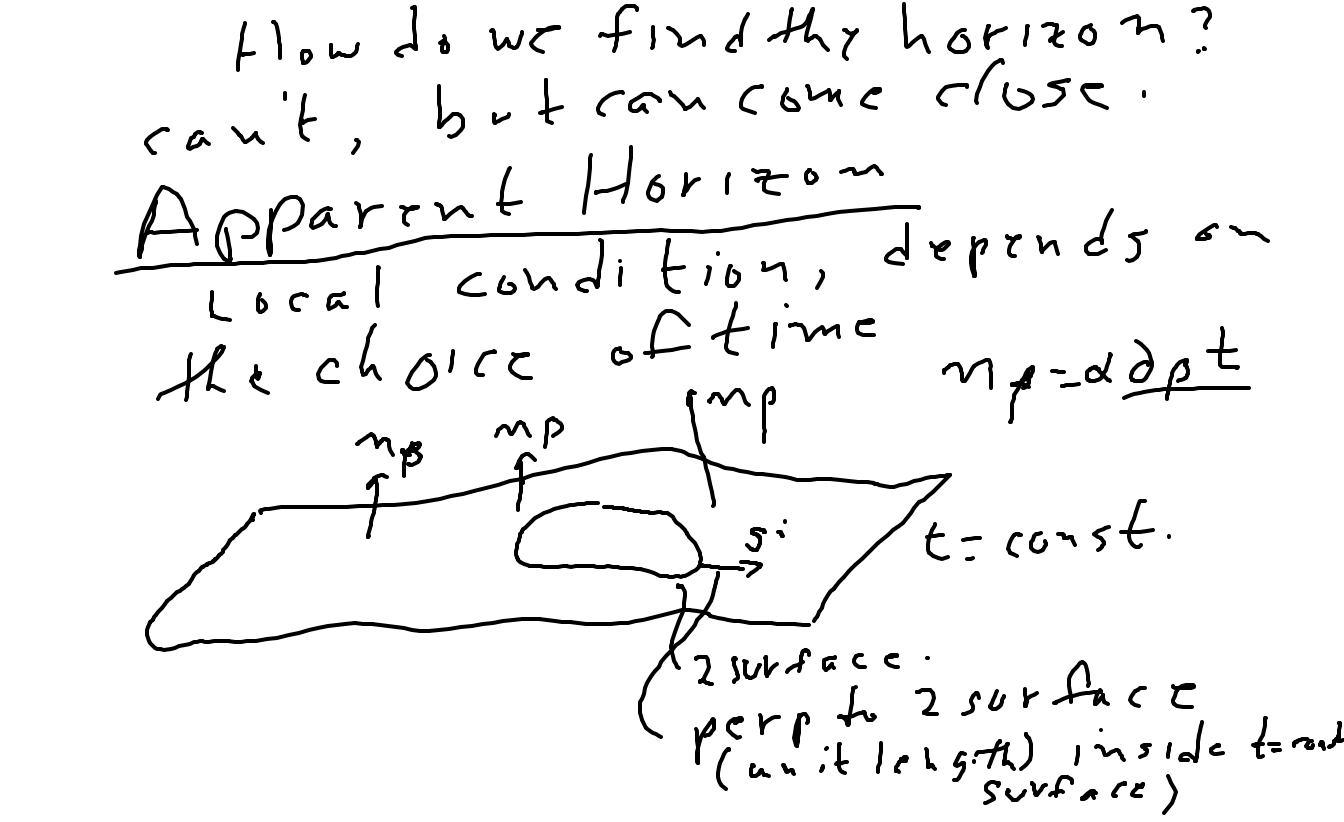 How do we find the horizon?
can't, but can come close.
Apparent Horizon
Local condition, depends on
the choice of time
nρ=α∂ρt
nρ nρ nρ
sⁱ
t=const.
2 surface.
perp to 2 surface
(unit length) inside t=const
surface)